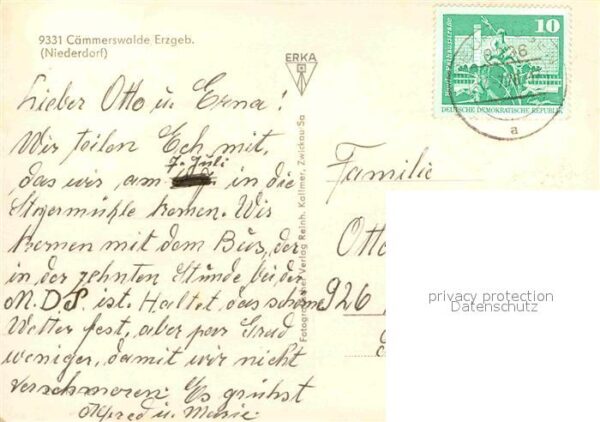 9331 Cämmerswalde Erzgeb.
(Niederdorf)
ERKA
10
DEUTSCHE DEMOKRATISCHE REPUBLIK
a
Lieber Otto u. Erna!
Wir teilen Ech mit,
7. Juli
das wir am in die
Stegermühle komen. Wir
komen mit dem Bus, der
in der zehnten Stunde bei der
M.D.S. ist. Haltet das schöne
Wetter fest, aber par Grad
weniger, damit wir nicht
verschmoren. Es grühst
Alfred u. Marie.
Fotographischer Verlag Reinh. Kallmer, Zwickau-Sa
Familie
Otto
926
privacy protection
Datenschutz